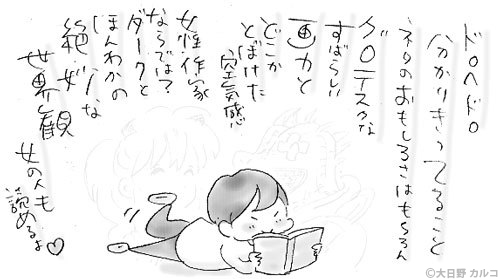 ドロヘドロ
分かりきってること
ネタのおもしろさはもちろん
グロテスクな
すばらしい
画力と
どこか
とぼけた
空気感
女性作家
ならでは?
ダークと
ほんわかの
絶ダリな
世界観
女の人も
読めるよ♡
©大日野 カルコ